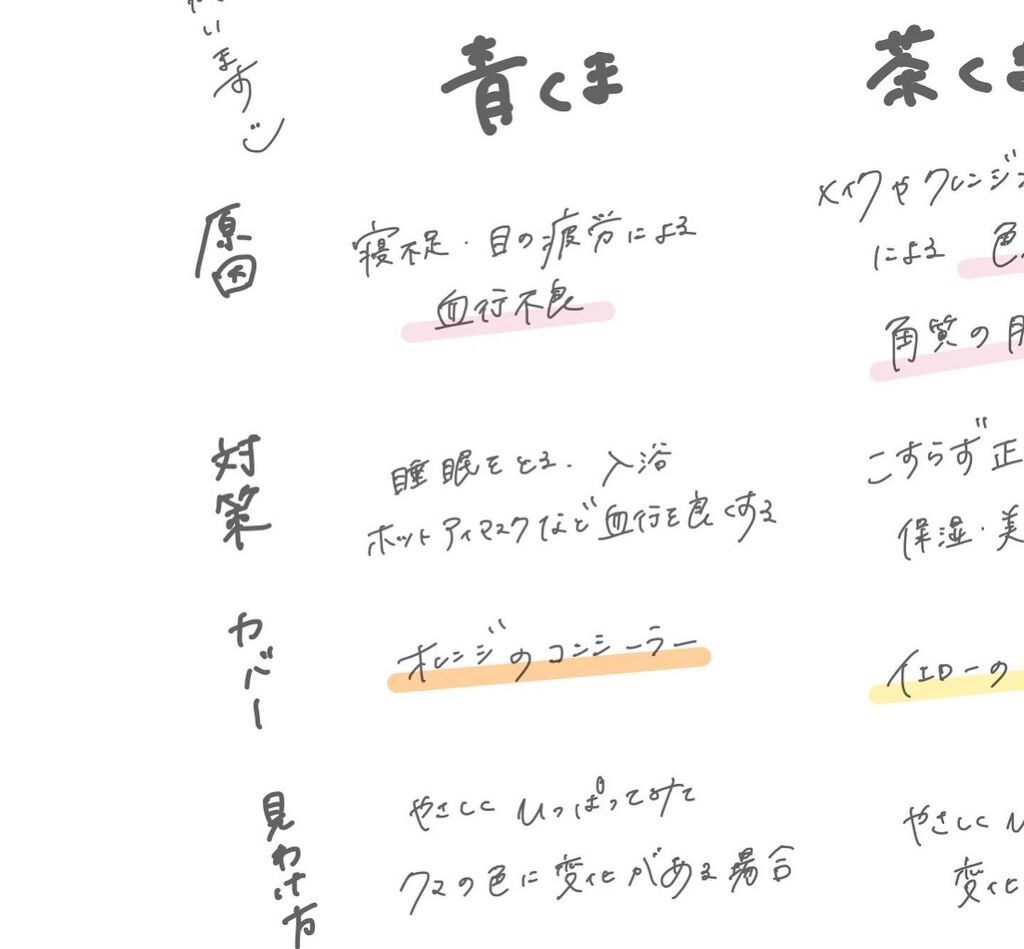 います
青くま
茶くま
原因
寝不足・目の疲労による
血行不良
メイクやクレンジン
による 色
角質の
対策
睡眠をとる・入浴
ホットアイマスクなど血行を良くする
こすらず正
保湿・美
カバー
オレンジのコンシーラー
イエローの
見わけ方
やさしく ひっぱってみて
クマの色に変化がある場合
やさしく ひ
変化